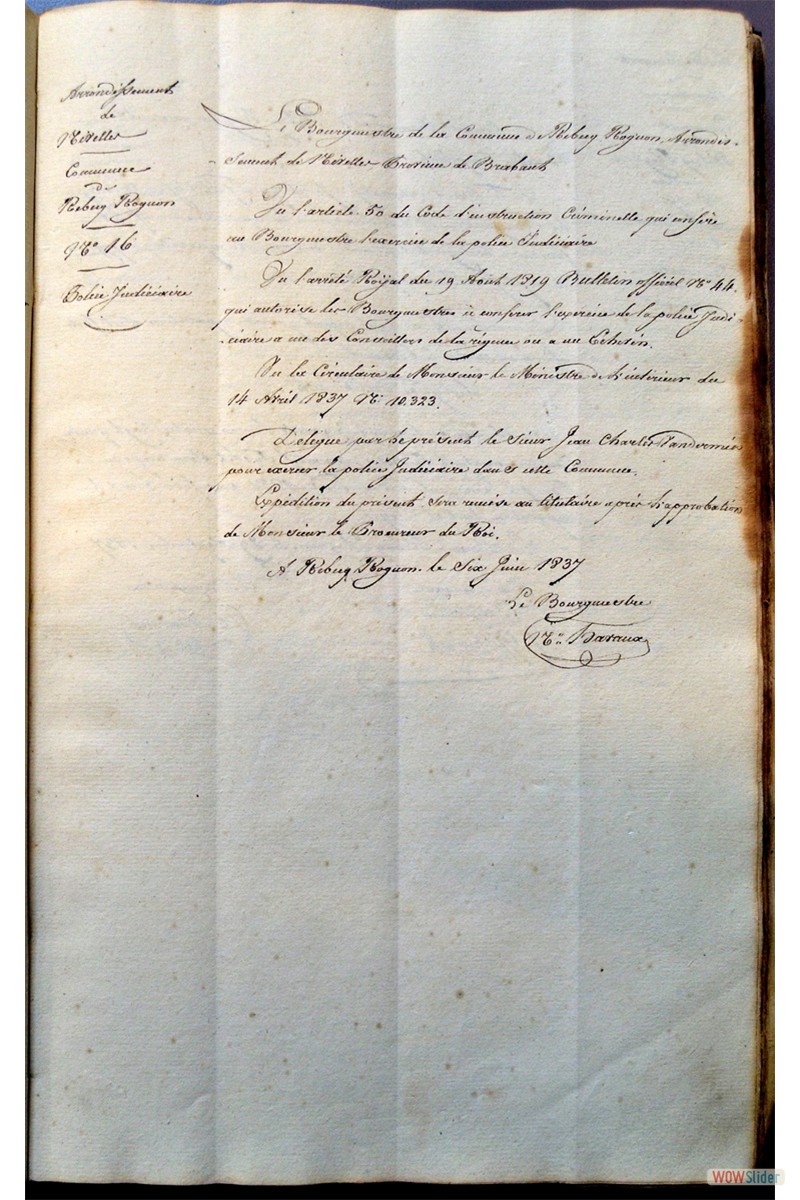 Arrondissement
de
Nivelles
Commune
de
Rebecq Rognon
N° 16
Police Judiciaire
Le Bourgmestre de la Commune de Rebecq Rognon, Arrondis-
sement de Nivelles Province de Brabant
Vu l'article 50 du Code d'instruction Criminelle qui confère
au Bourgmestre l'exercice de la police Judiciaire
Vu l'arrêté Royal du 19 Août 1819 Bulletin officiel N° 44.
qui autorise les Bourgmestres à conferer l'exercice de la police Judi-
ciaire a un des Conseillers de la régence ou a un Echevin.
Vu la Circulaire de Monsieur le Ministre de l'intérieur du
14 Avril 1837 N° 10.323.
Délègue par le présent le sieur Jean Charles
pour exercer la police Judiciaire dans cette Commune.
Expédition du présent sera remise au titulaire après l'approbation
de Monsieur le Procureur du Roi.
A Rebecq Rognon. le Six Juin 1837
Le Bourgmestre
Havaux
WOWSlider